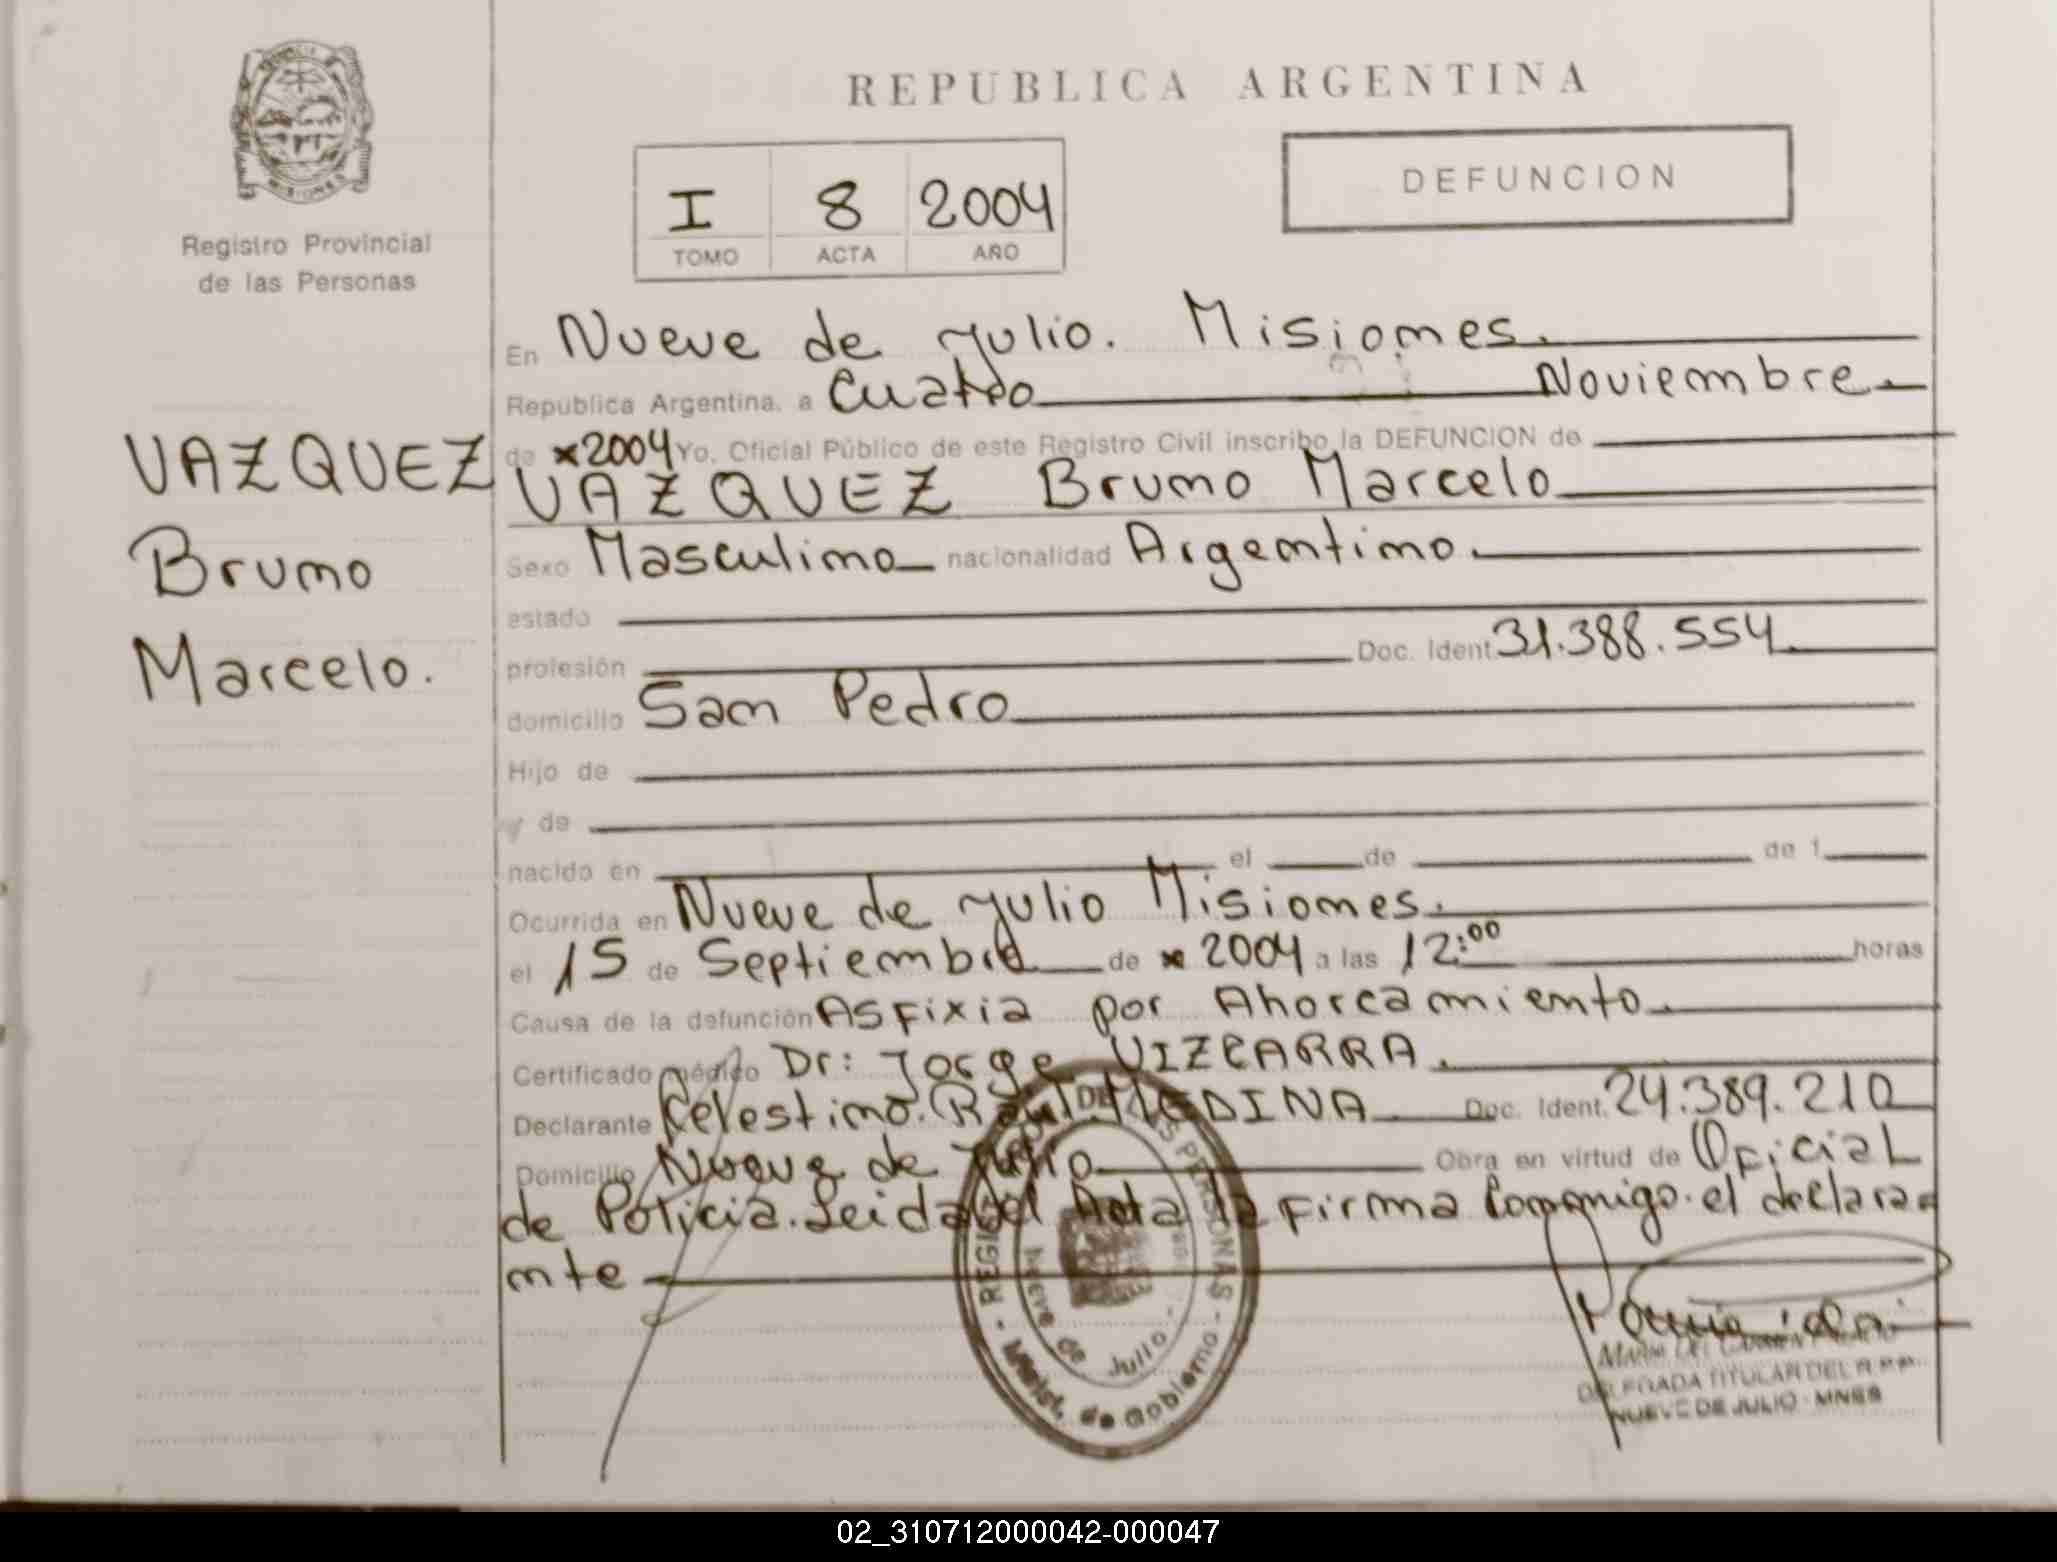 REPUBLICA ARGENTINA
I 8 2004
TOMO ACTA AÑO
DEFUNCION
MISIONES
Registro Provincial
de las Personas
VAZQUEZ
Bruno
Marcelo.
En Nueve de Julio. Misiones.
República Argentina, a Cuatro Noviembre
de 2004 Yo, Oficial Público de este Registro Civil inscribo la DEFUNCION de
VAZQUEZ Bruno Marcelo
Sexo Masculino nacionalidad Argentino.
estado
profesión Doc. Ident. 31.388.554
domicilio San Pedro
Hijo de
y de
nacido en el de de 1
Ocurrida en Nueve de Julio Misiones.
el 15 de Septiembre de 2004 a las 12:00 horas
Causa de la defunción Asfixia por Ahorcamiento
Certificado médico Dr: Jorge VIZCARRA.
Declarante Celestino. Raul MEDINA Doc. Ident. 24.389.210
Domicilio Nueve de Julio Obra en virtud de Oficial
de Policia. Leida el Acta la firma Conmigo el declara
nte
REGIST DE LAS PERSONAS - Minist. de Gobierno -
Nueve de Julio -
MARIA DEL CARMEN
DELEGADA TITULAR DEL R.P.P.
NUEVE DE JULIO - MNES
02_310712000042-000047